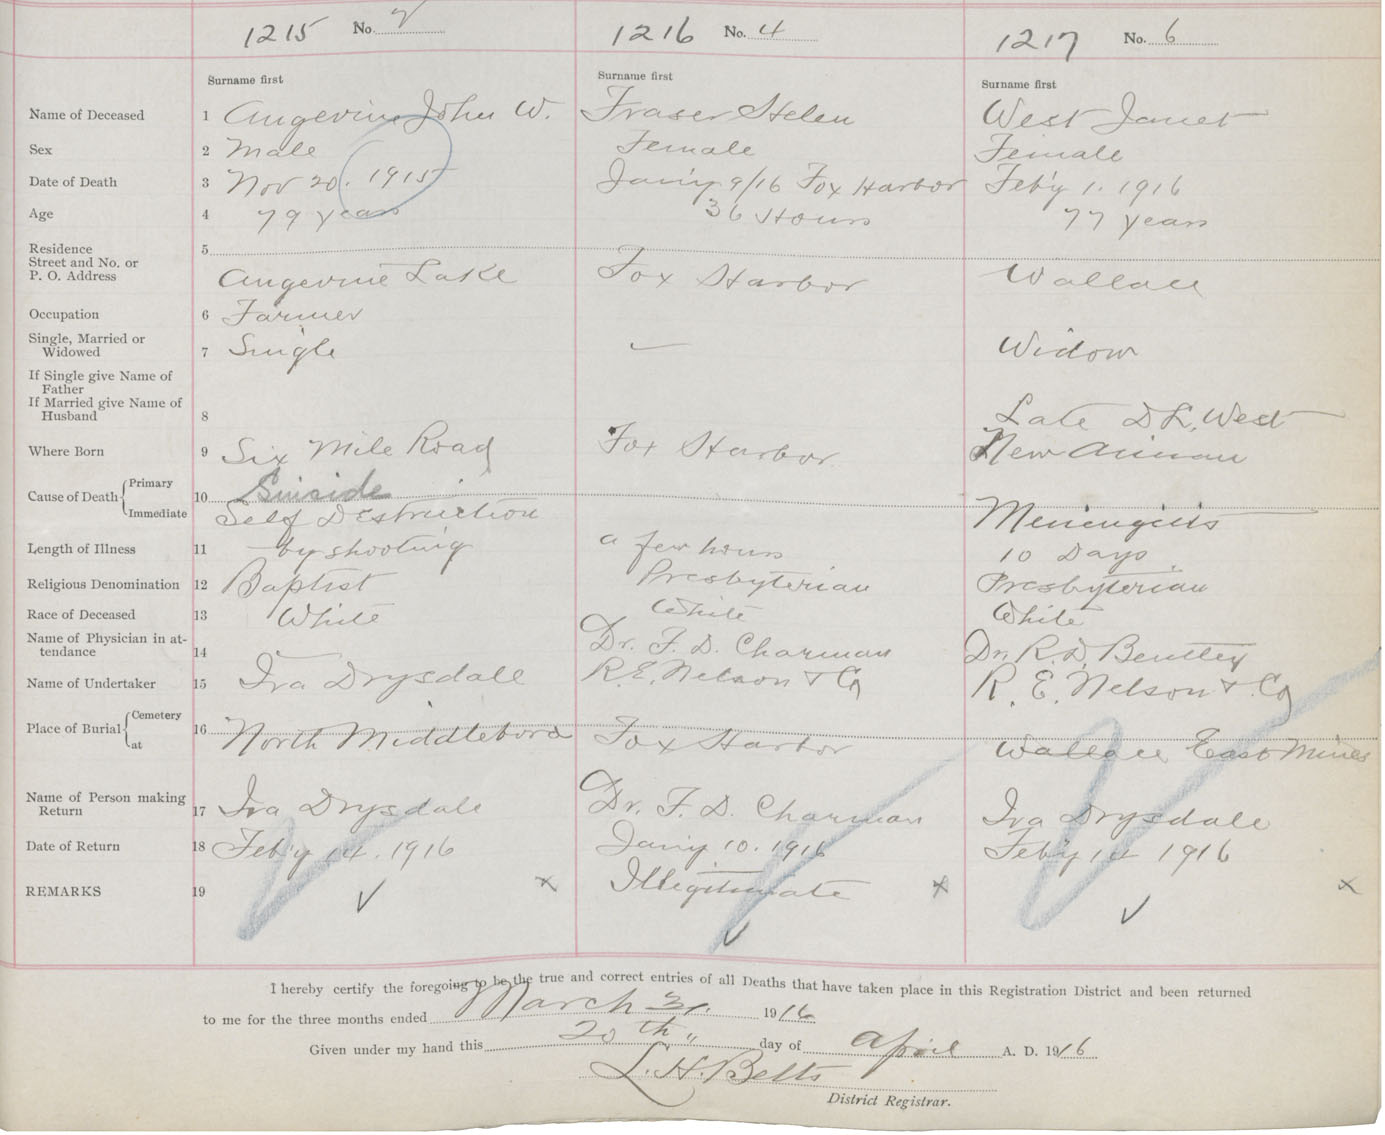 1215 No. 2 1216 No. 4 1217 No. 6
Surname first Surname first Surname first
Name of Deceased 1 Angevine John W. Fraser Helen West Janet
Sex 2 Male Female Female
Date of Death 3 Nov 20. 1915 Jan'y 9/16 Fox Harbor Feb'y 1. 1916
Age 4 79 years 36 Hours 77 years
Residence 5
Street and No. or
P. O. Address Angevine Lake Fox Harbor Wallace
Occupation 6 Farmer
Single, Married or
Widowed 7 Single — Widow
If Single give Name of
Father
If Married give Name of
Husband 8 Late D L. West
Where Born 9 Six Mile Road Fox Harbor New Annan
Cause of Death { Primary 10 Suicide
Immediate Self Destruction Meniengitis
Length of Illness 11 by shooting a few hours 10 Days
Religious Denomination 12 Baptist Presbyterian Presbyterian
Race of Deceased 13 White White White
Name of Physician in at-
tendance 14 Dr. F. D. Charman Dr. R. D. Bentley
Name of Undertaker 15 Iva Drysdale R. E. Nelson & Co R. E. Nelson & Co
Place of Burial { Cemetery 16
at North Middleboro Fox Harbor Wallace East Mines
Name of Person making
Return 17 Iva Drysdale Dr. F. D. Charman Iva Drysdale
Date of Return 18 Feb'y 14. 1916 Jan'y 10. 1916 Feb'y 14 1916
REMARKS 19 x Illegitimate x x
I hereby certify the foregoing to be the true and correct entries of all Deaths that have taken place in this Registration District and been returned
to me for the three months ended March 31. 1916
Given under my hand this 20th " day of April A. D. 1916
L. H. Betts
District Registrar.